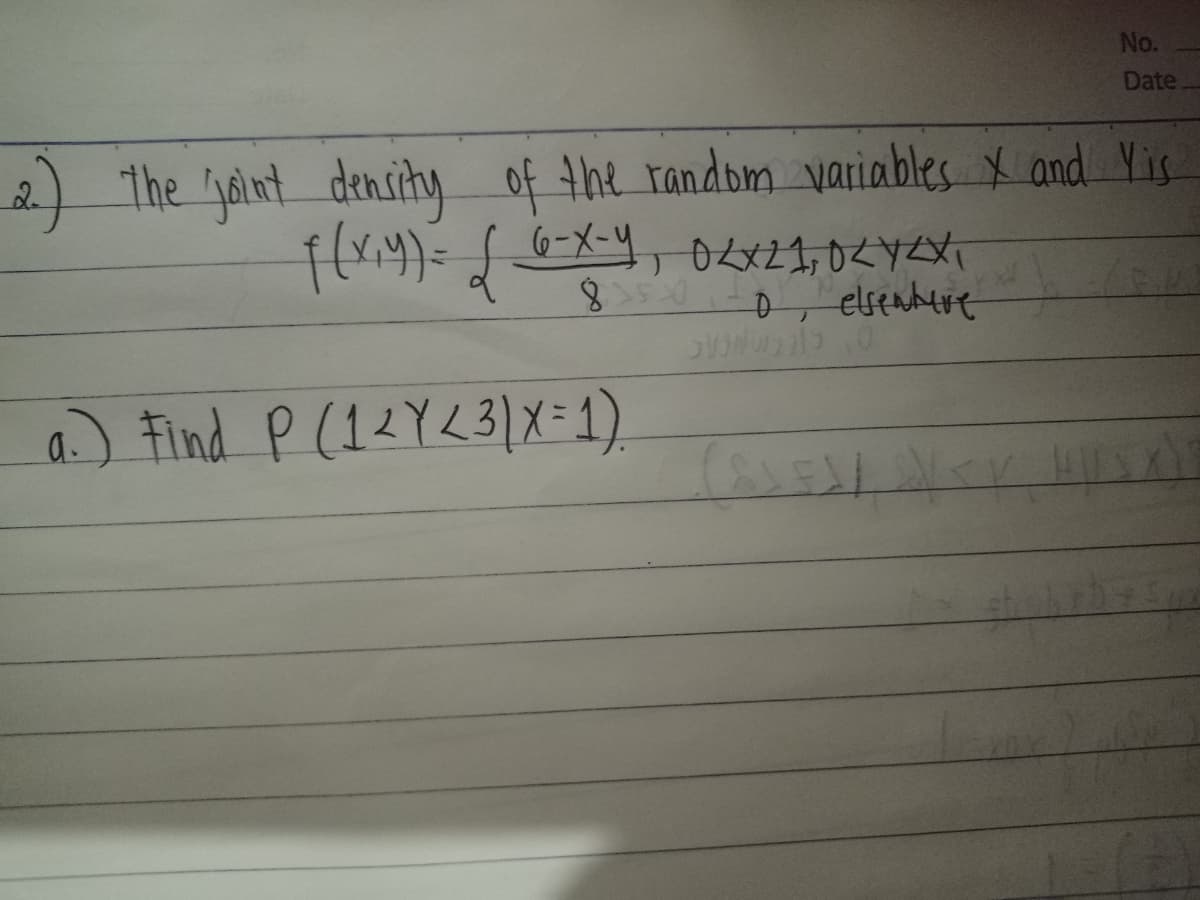 No.
Date
2.) The joint density of the random variables X and Y is
f(x,y) = { 6-x-y / 8, 0<x<1, 0<y<x,
0, elsewhere
a.) Find P(1<Y<3|X=1).